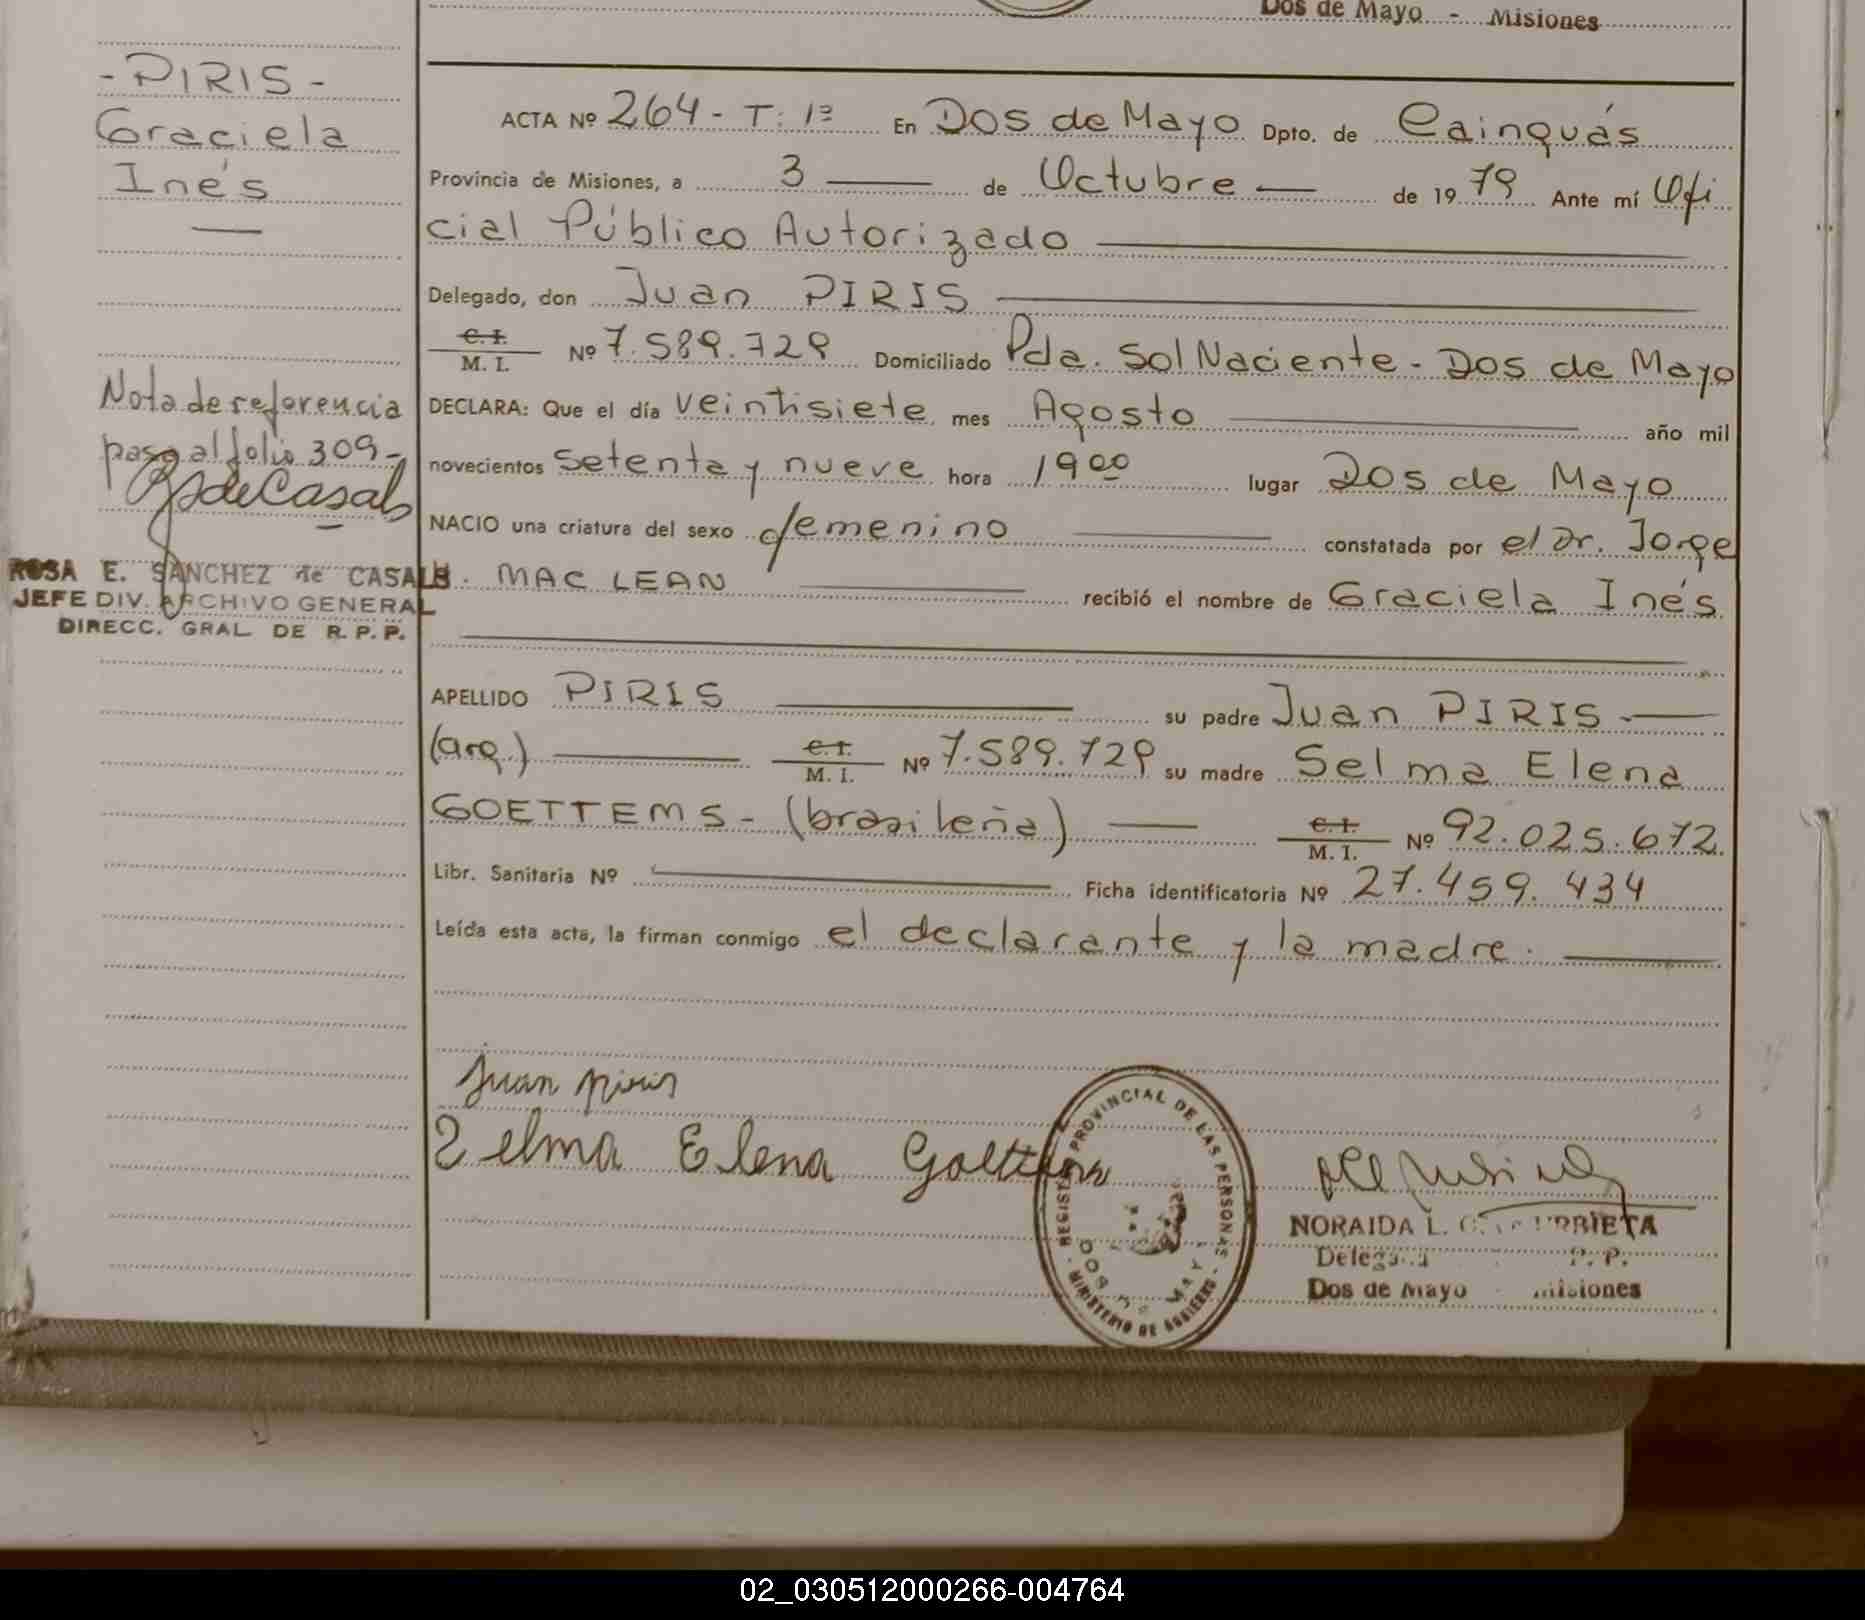 Dos de Mayo - Misiones
- PIRIS -
Graciela
Inés
Nota de referencia
pasa al folio 309-
RS de Casals
ROSA E. SANCHEZ de CASALS
JEFE DIV. ARCHIVO GENERAL
DIRECC. GRAL DE R. P. P.
ACTA Nº 264 - T: 1ª En Dos de Mayo Dpto. de Cainguás
Provincia de Misiones, a 3 — de Octubre — de 1979 Ante mí Ofi
cial Público Autorizado
Delegado, don Juan PIRIS
C. I. M. I. Nº 7.589.729 Domiciliado Pda. Sol Naciente - Dos de Mayo
DECLARA: Que el día veintisiete mes Agosto año mil
novecientos setenta y nueve hora 19 00 lugar Dos de Mayo
NACIO una criatura del sexo femenino constatada por el Dr. Jorge
H. MAC LEAN recibió el nombre de Graciela Inés
APELLIDO PIRIS su padre Juan PIRIS -
(arg.) C. I. M. I. Nº 7.589.729 su madre Selma Elena
GOETTEMS - (brasileña) C. I. M. I. Nº 92.025.672
Libr. Sanitaria Nº Ficha identificatoria Nº 27.459.434
Leída esta acta, la firman conmigo el declarante y la madre.
Juan piris
Zelma Elena Goettems
REGISTRO PROVINCIAL DE LAS PERSONAS
DOS DE MAYO
- MINISTERIO DE GOBIERNO -
NORAIDA L. URBIETA
Delegada P. P.
Dos de Mayo - Misiones
02_030512000266-004764